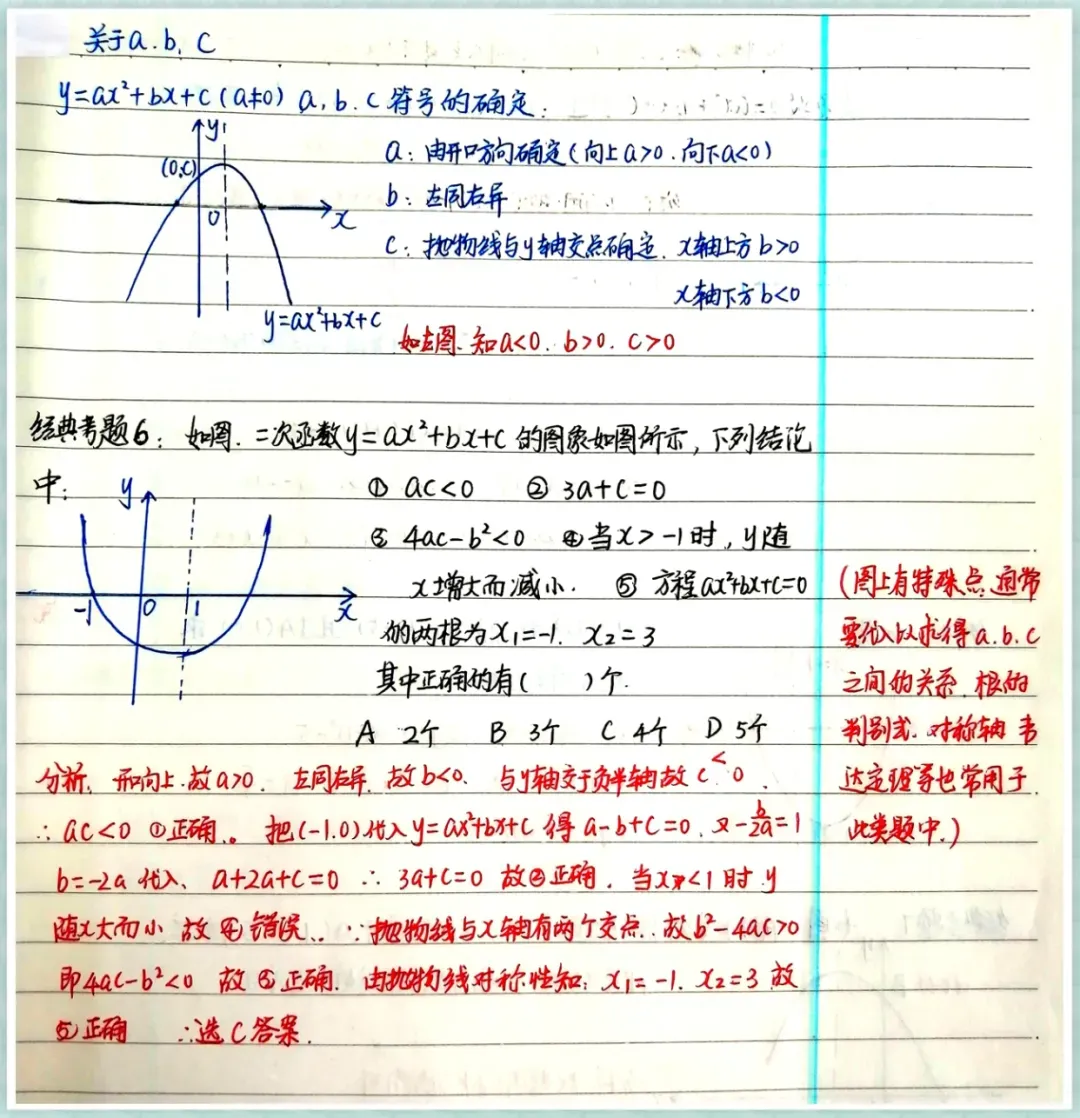 关于a.b.C
y=ax²+bx+c(a≠0) a,b.c符号的确定:
y
(0,c)
0
x
y=ax²+bx+c
a:由开口方向确定(向上a>0.向下a<0)
b:左同右异
c:抛物线与y轴交点确定.x轴上方b>0
x轴下方b<0
如左图.知a<0.b>0.c>0
经典考题6:如图.二次函数y=ax²+bx+c的图象如图所示,下列结论
中:
① ac<0 ② 3a+c=0
③ 4ac-b²<0 ④当x>-1时,y随
x增大而减小. ⑤ 方程ax²+bx+c=0
的两根为x₁=-1. x₂=3
其中正确的有( )个.
A 2个 B 3个 C 4个 D 5个
y
-1
0
1
x
(图上有特殊点.通常
要代入以求得a.b.c
之间的关系.根的
判别式.对称轴 韦
达定理等也常用于
此类题中.)
分析.开向上.故a>0. 左同右异.故b<0. 与y轴交于负半轴故c<0.
∴ac<0 ①正确.。把(-1.0)代入y=ax²+bx+c得a-b+c=0.又-b/2a=1
b=-2a代入、a+2a+c=0 ∴3a+c=0 故②正确.当x<1时.y
随x大而小 故④错误..∵抛物线与x轴有两个交点.故b²-4ac>0
即4ac-b²<0 故③正确.由抛物线对称性知:x₁=-1. x₂=3.故
⑤正确 ∴选C答案.